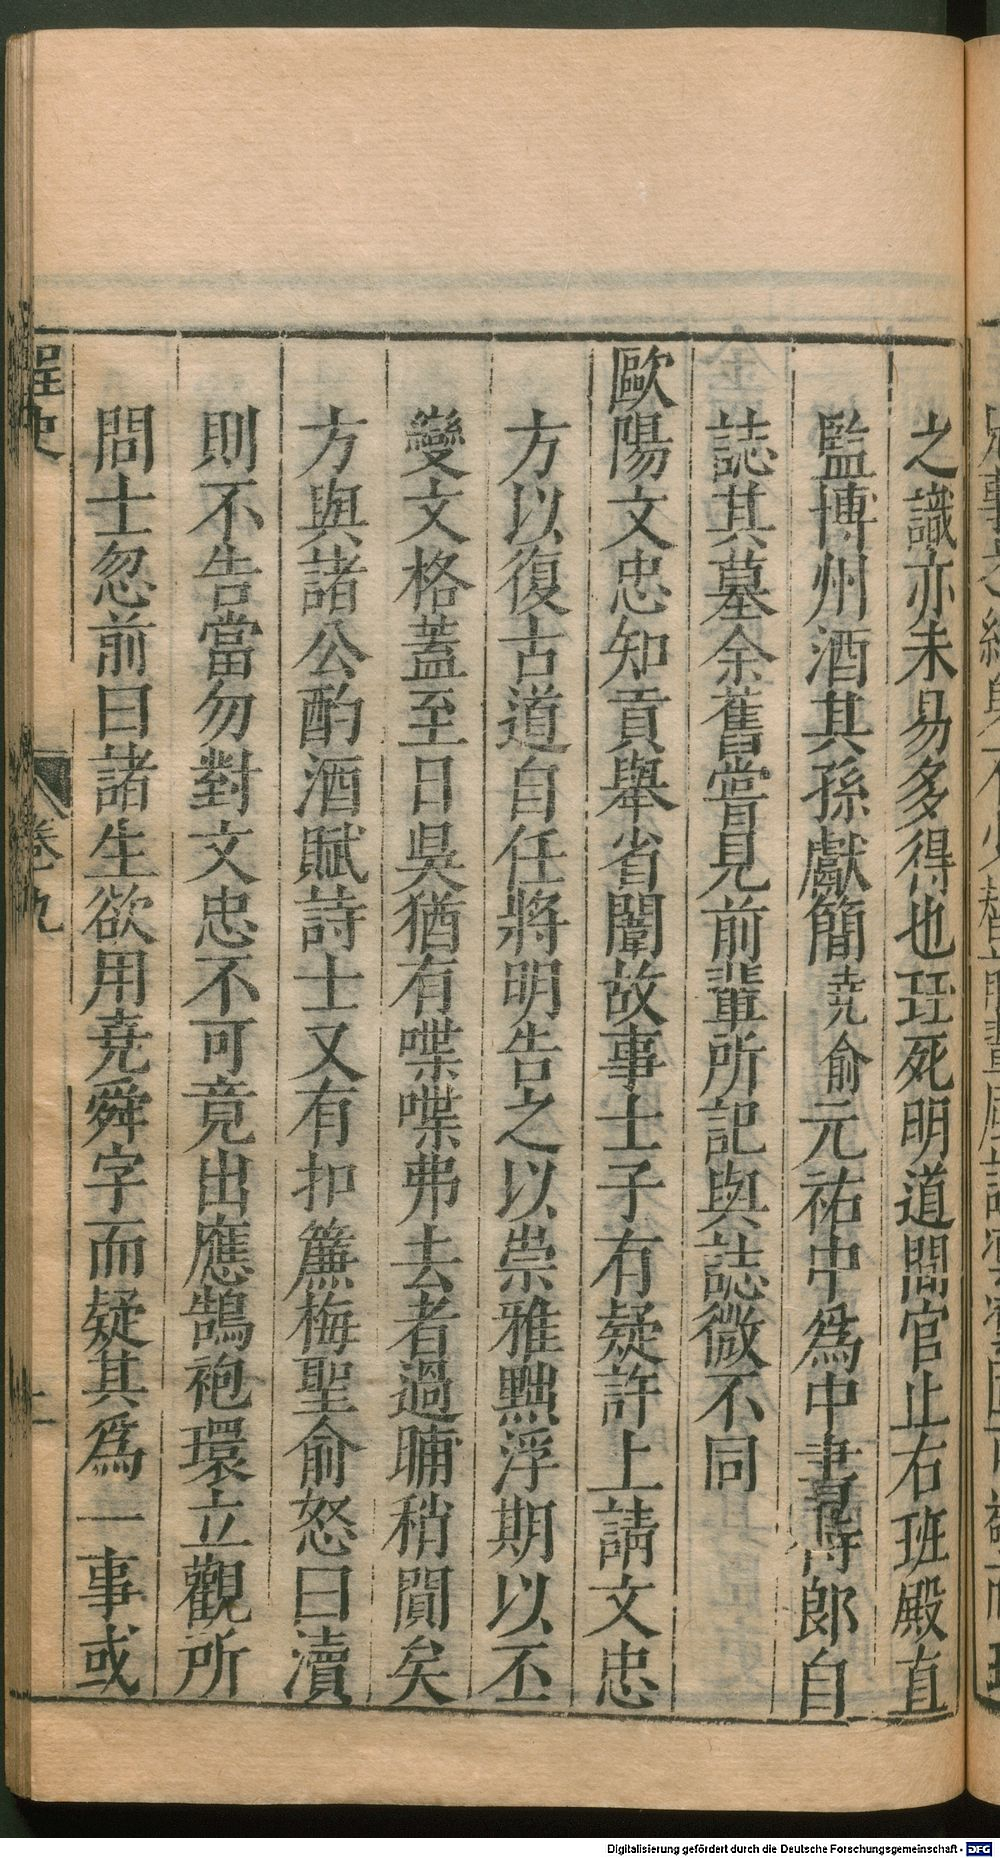 之識亦未易多得也珏死明道間官止右班殿直
監博州酒其孫獻簡堯俞元祐中爲中書侍郎自
誌其墓余舊嘗見前輩所記與誌微不同
歐陽文忠知貢舉省闈故事士子有疑許上請文忠
方以復古道自任將明告之以崇雅黜浮期以丕
變文格蓋至日吳猶有喋喋弗去者過晡稍間矣
方與諸公酌酒賦詩士又有扣簾梅聖俞怒曰瀆
則不告當勿對文忠不可竟出應鵠袍環立觀所
問士忽前曰諸生欲用堯舜字而疑其爲一事或
桯史
卷九
Digitalisierung gefördert durch die Deutsche Forschungsgemeinschaft - DFG